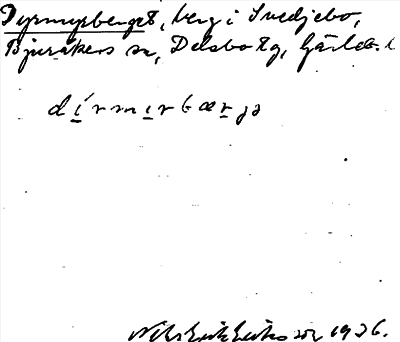 Dyrmyrberget, berg i Svedjebo,
Bjuråkers sn, Delsbo tg, Gävleb. l
dírmɪrbærjə
Nils Erik Eriksson 1936.